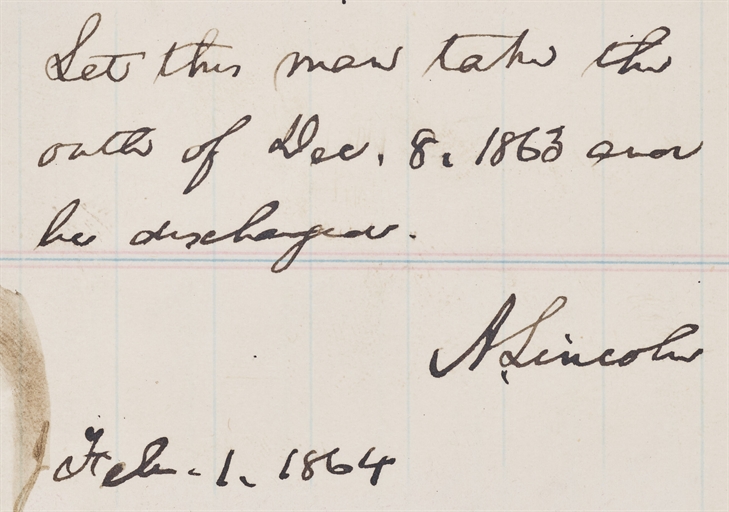 Let this man take the
oath of Dec. 8. 1863 and
be discharged.
A. Lincoln
Feb. 1. 1864